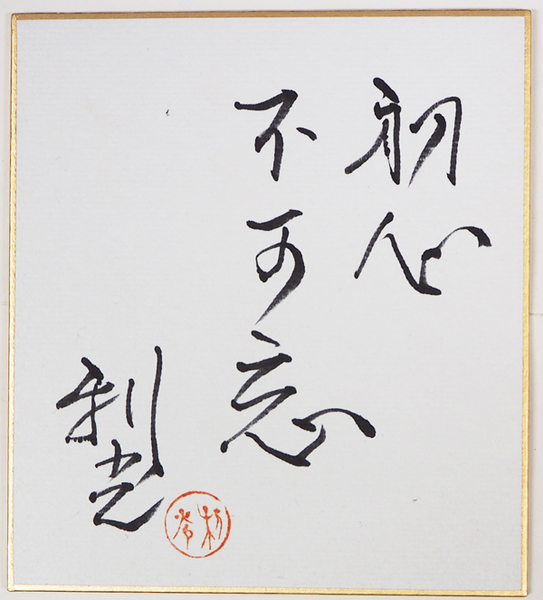 初心
不可忘
利光